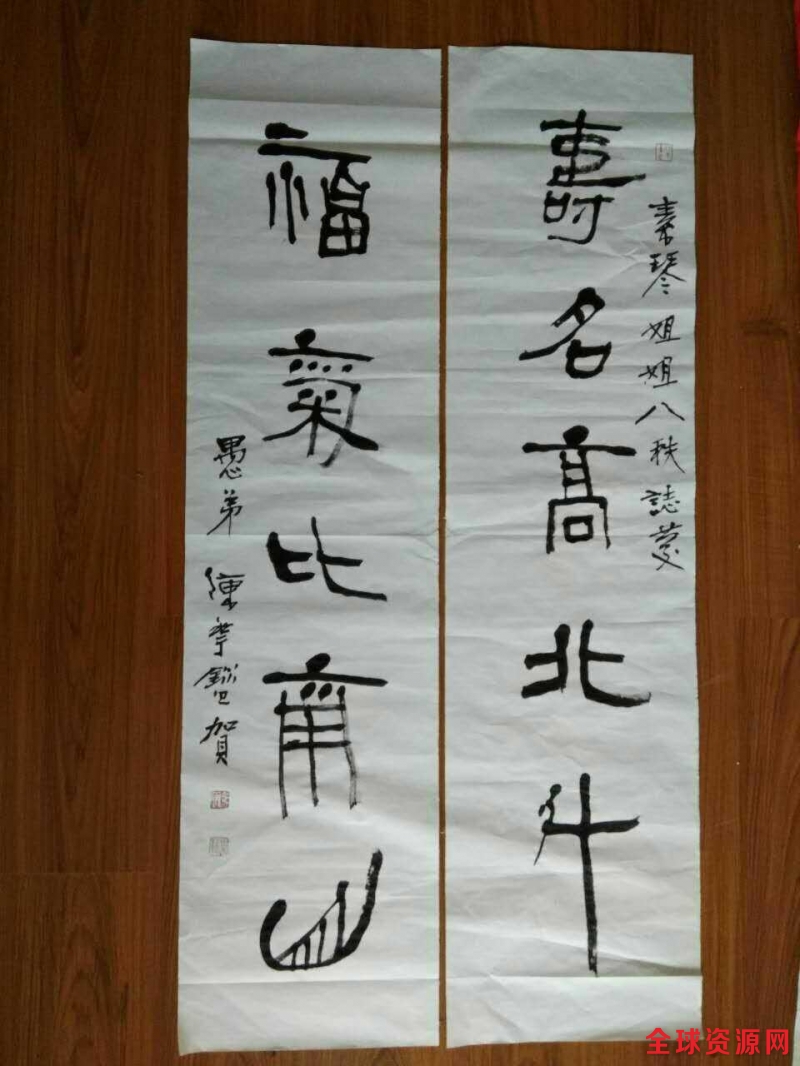 素琴姐姐八秩誌慶
壽名高北斗
福氣比南山
愚弟 陳 賀
全球资源网